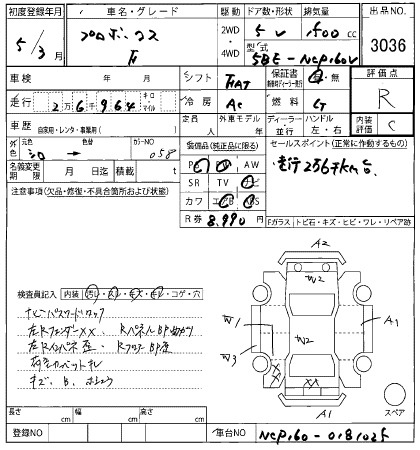 初度登録年月 車名・グレード 駆動 ドア数・形状 排気量 出品NO.
5/3月 プロボックス F 2WD 4WD 5 V 1500 3036
型式 5BE-NCP160V
車検 年 月 シフト FAT 保証書 有・無 評価点 R
走行 2万6千964 キロ マイル 冷房 AC 燃料 G
車歴 自家用・レンタ・事業用( ) 定員 人 外車モデル 年 ディーラー・並行 ハンドル 左・右 内装 C
外色 元色 シロ → 色替 カラーNO 058
装備品(純正品に限る) セールスポイント(正常に作動するもの)
名義変更期限 月 日 積載 t PS PW AW
走行256千km台
注意事項(欠品・修復・不具合箇所および状態) SR TV ナビ
カワ エアB ABS
R券 8,990 円 Fガラス・トビ石・キズ・ヒビ・ワレ・リペア跡
A2
W2
検査員記入 内装 汚レ・スレ・キズ・キレ・コゲ・穴
ナビパスワードロック
左RフェンダーXX RパネルBP曲がり
左Rインパネ歪 RフロアーBP歪
荷室カバット
キズ、B、
W1
W3
W2
A1
XX
XX
A1
スペア
長さ cm 幅 cm 高さ cm
登録NO 車台NO NCP160-0181025